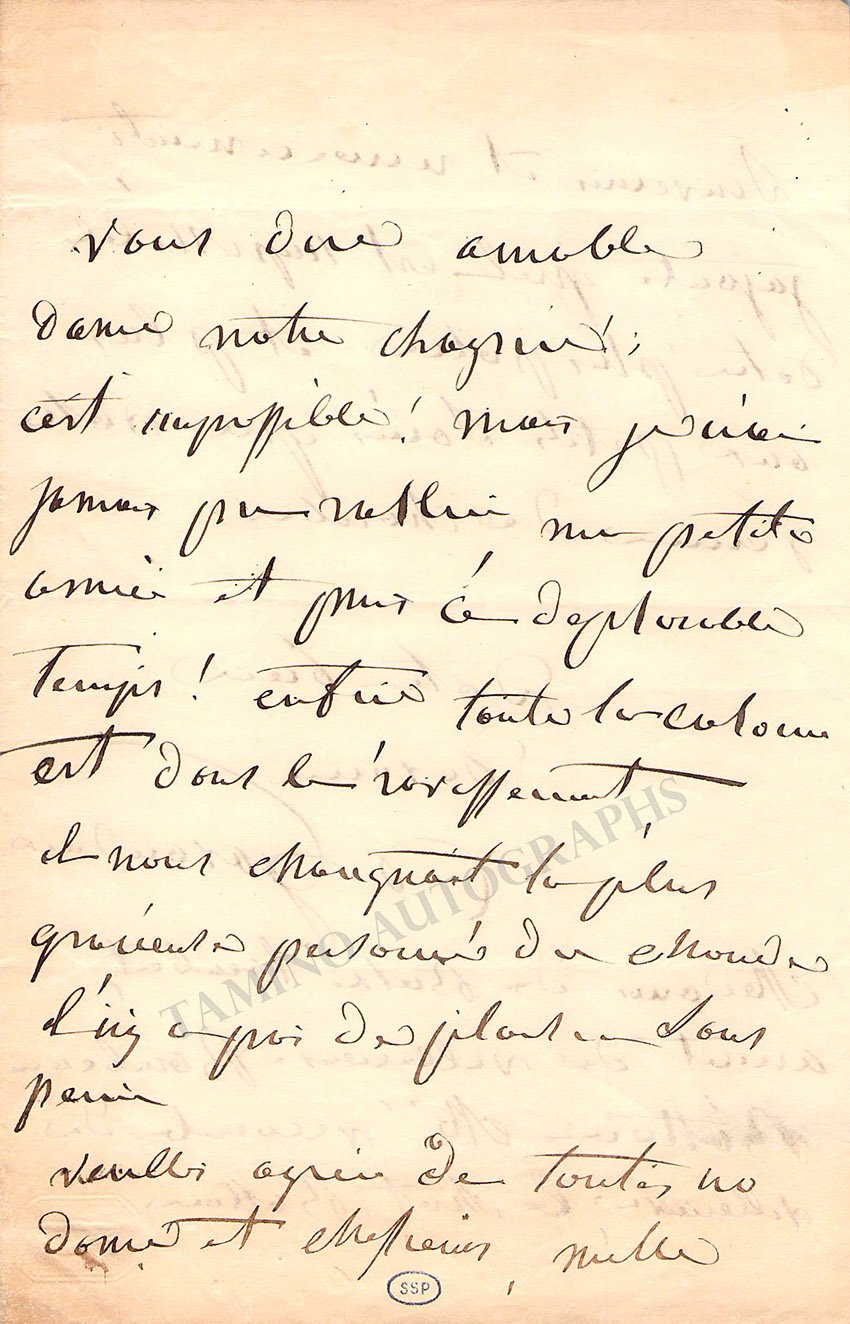 vous dire aimable
dame notre chagrin;
c'est impossible! mais je n'ai
jamais pu ma petite
amie et puis ce deplorable
temps! enfin toute la colonie
est dans le
il nous la plus
gracieuse personne du monde
il n'y a pas de plaisir sans
peine
veuillez agréer de toutes no
dame et messieurs, mille
TAMINO AUTOGRAPHS
SSP